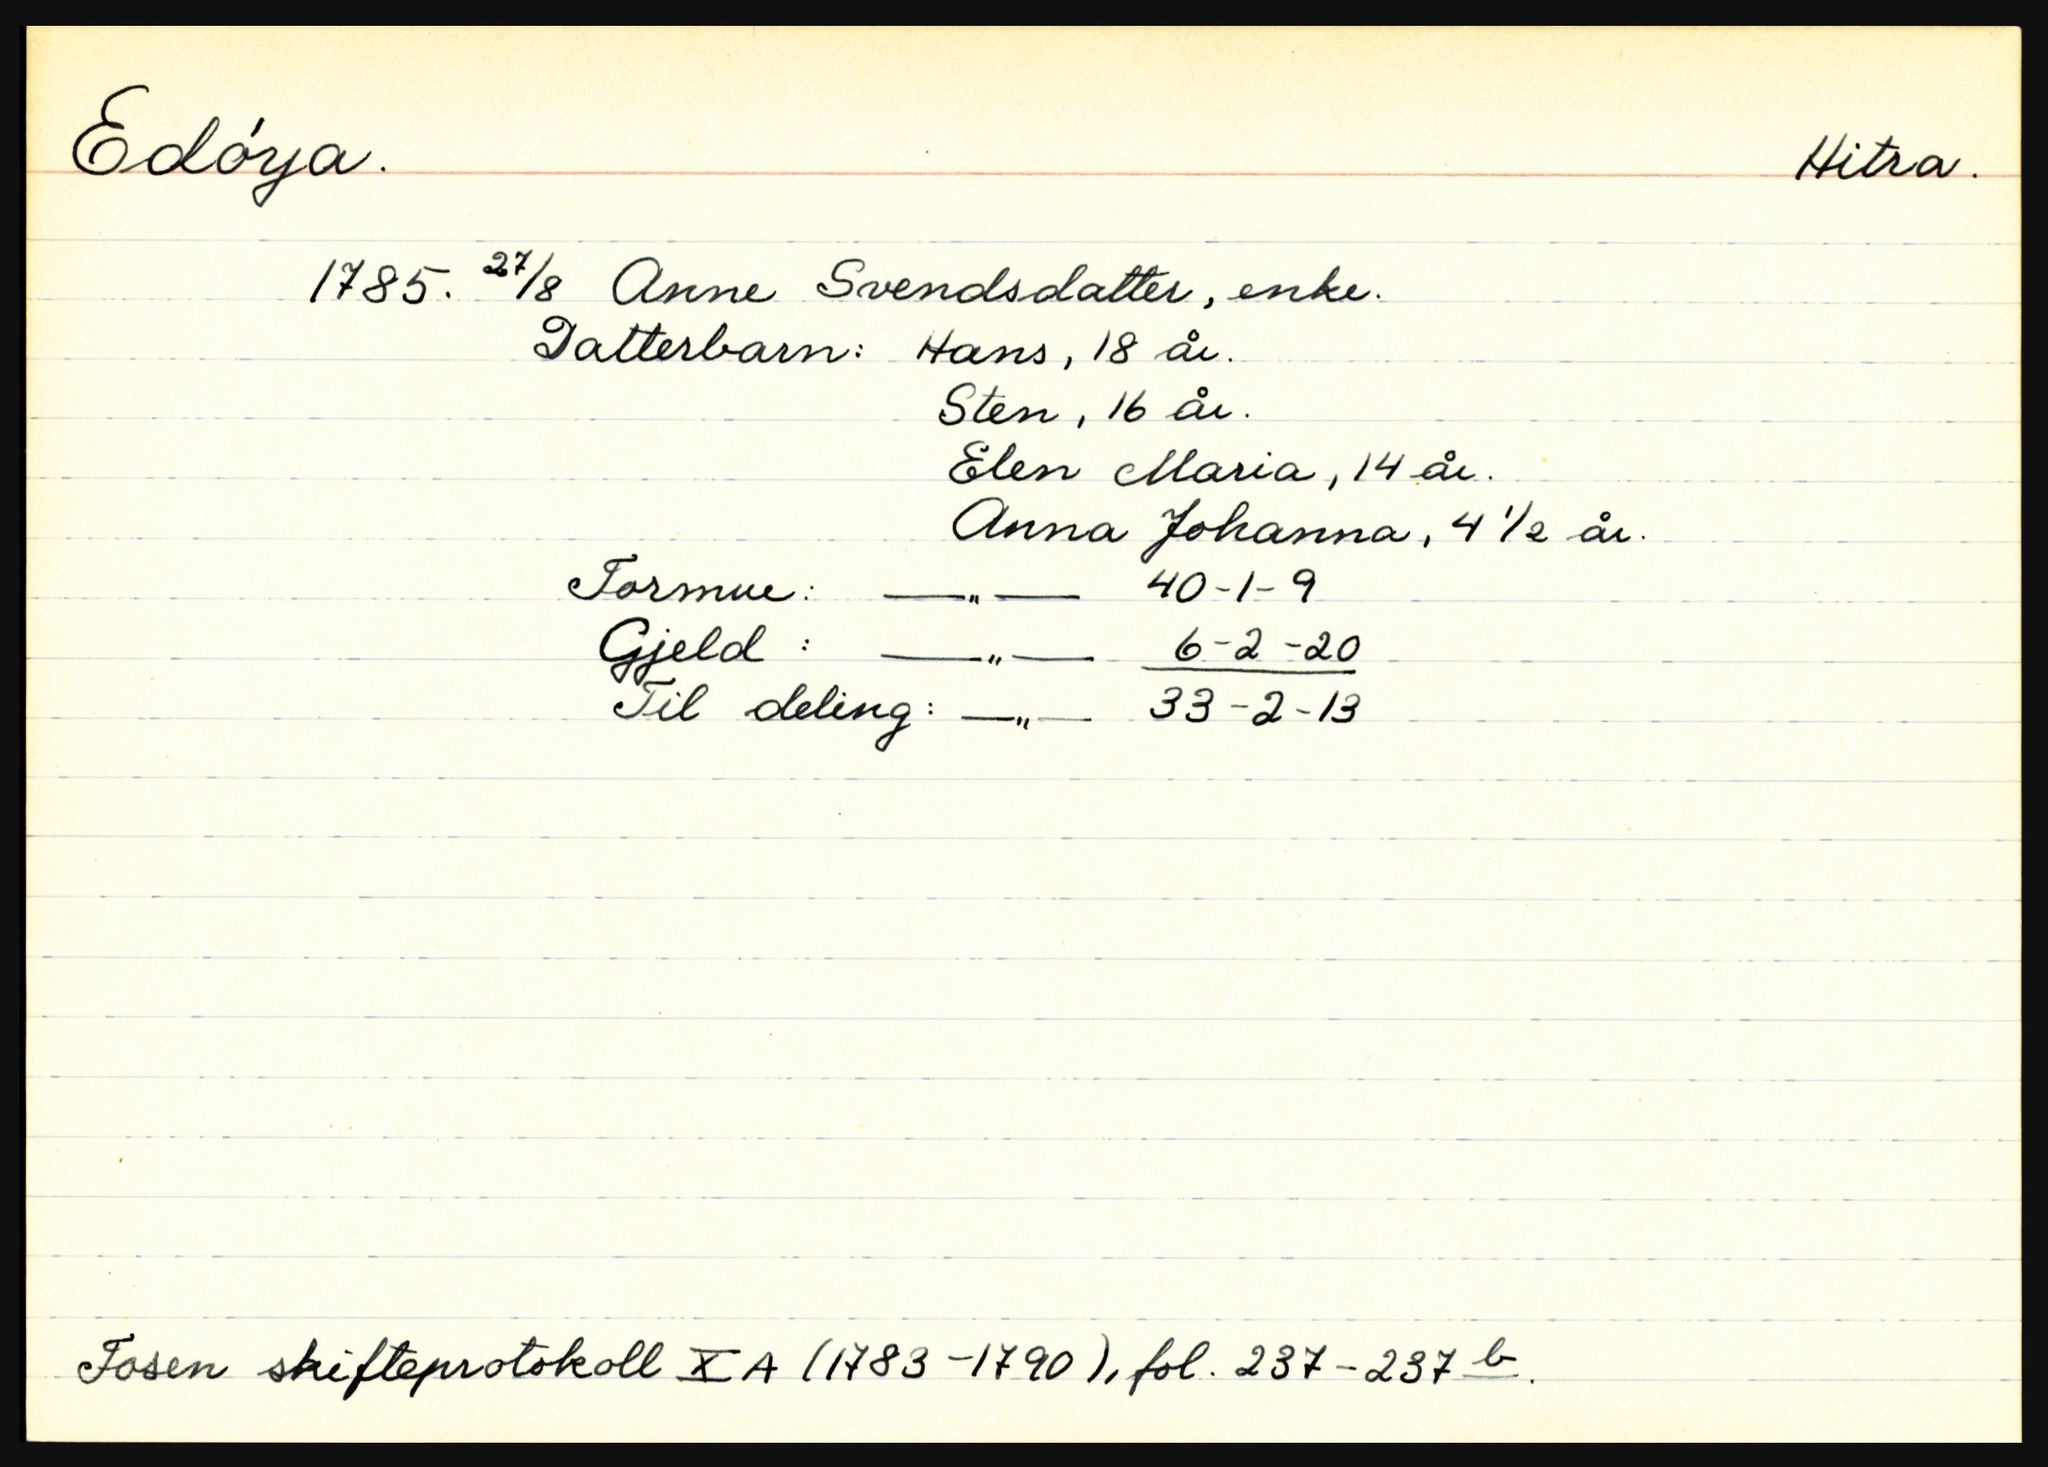 Edóya. Hitra.
1785. 27/8 Anne Svendsdatter, enke.
Datterbarn: Hans, 18 år.
Sten, 16 år.
Elen Maria, 14 år.
Anna Johanna, 4 1/2 år.
Formue: —„— 40-1-9
Gjeld: —„— 6-2-20
Til deling: —„— 33-2-13
Fosen skifteprotokoll X A (1783-1790), fol. 237-237 b.